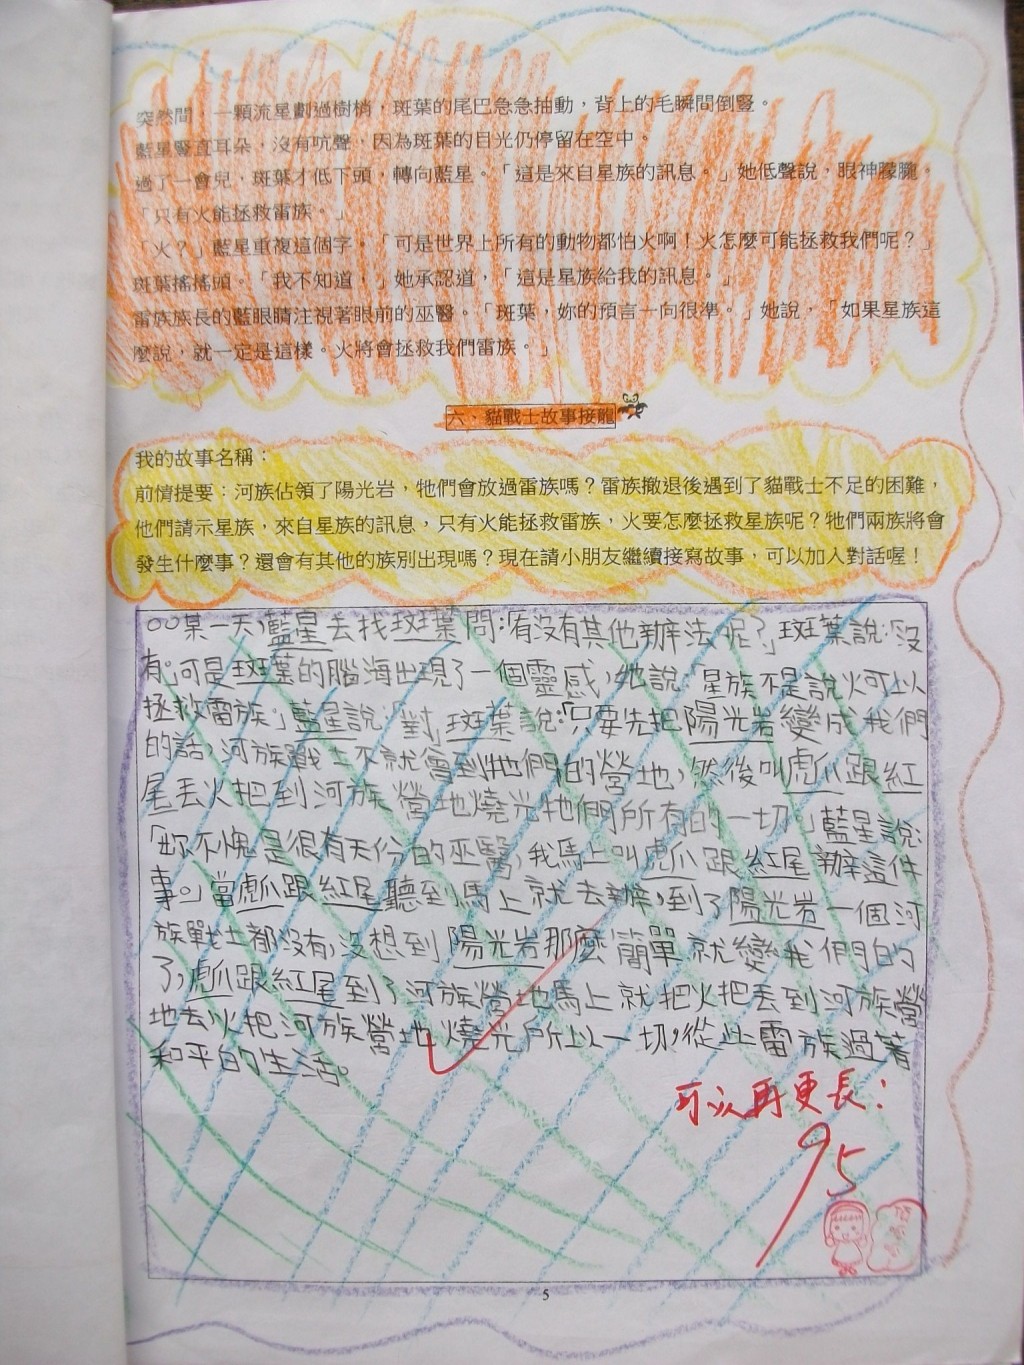 突然間，一顆流星劃過樹梢，斑葉的尾巴急急抽動，背上的毛瞬間倒豎。
藍星豎直耳朵，沒有吭聲，因為斑葉的目光仍停留在空中。
過了一會兒，斑葉才低下頭，轉向藍星。「這是來自星族的訊息。」她低聲說，眼神矇矓。
「只有火能拯救雷族。」
「火？」藍星重複這個字。「可是世界上所有的動物都怕火啊！火怎麼可能拯救我們呢？」
斑葉搖搖頭。「我不知道，」她承認道，「這是星族給我的訊息。」
雷族族長的藍眼睛注視著眼前的巫醫。「斑葉，妳的預言一向很準。」她說，「如果星族這
麼說，就一定是這樣。火將會拯救我們雷族。」
六、貓戰士故事接龍
我的故事名稱：
前情提要：河族佔領了陽光岩，牠們會放過雷族嗎？雷族撤退後遇到了貓戰士不足的困難，
他們請示星族，來自星族的訊息，只有火能拯救雷族，火要怎麼拯救星族呢？牠們兩族將會
發生什麼事？還會有其他的族別出現嗎？現在請小朋友繼續接寫故事，可以加入對話喔！
○○某一天，藍星去找斑葉問：「有沒有其他辦法呢？」斑葉說：「沒
有。」可是斑葉的腦海出現了一個靈感，她說「星族不是說火可以
拯救雷族。」藍星說：「對」斑葉說：「只要先把陽光岩變成我們
的話，河族戰士不就會到牠們的營地，然後叫虎爪跟紅
尾丟火把到河族營地燒光牠們所有的一切」藍星說：
「妳不愧是很有天份的巫醫，我馬上叫虎爪跟紅尾辦這件
事。」當虎爪跟紅尾聽到馬上就去辦，到了陽光岩一個河
族戰士都沒有，沒想到陽光岩那麼簡單就變我們的
了，虎爪跟紅尾到了河族營地馬上就把火把丟到河族營
地去火把河族營地燒光所以一切，從此雷族過著
和平的生活。
可以再更長！
95
5